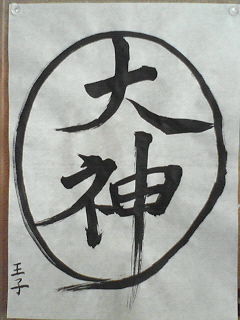 大神
王子